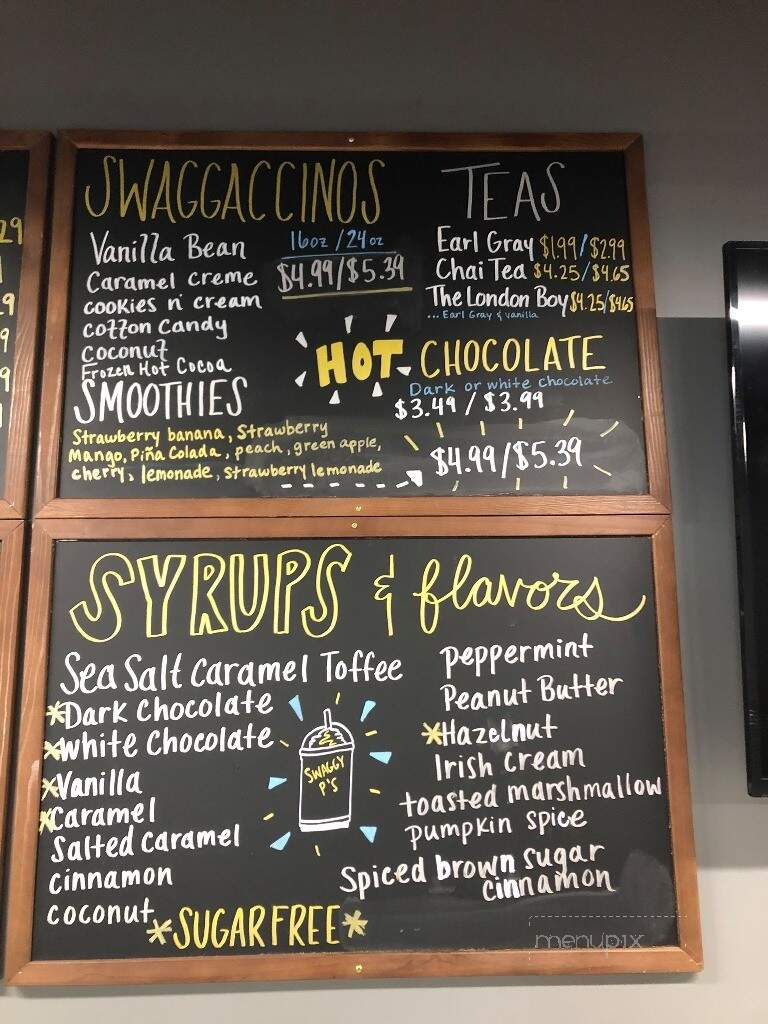 29
9
9
9
SWAGGACCINOS
Vanilla Bean
Caramel creme
cookies n' cream
cotton candy
coconut
Frozen Hot Cocoa
16oz / 24oz
$4.99/$5.39
SMOOTHIES
Strawberry banana, Strawberry
Mango, Piña Colada, peach, green apple,
cherry, lemonade, strawberry lemonade
TEAS
Earl Gray $1.99/$2.99
Chai Tea $4.25/$4.65
The London Boy $4.25/$4.65
... Earl Gray & vanilla
HOT CHOCOLATE
Dark or white chocolate
$3.49 / $3.99
$4.99/$5.39
SYRUPS & flavors
Sea Salt Caramel Toffee
*Dark Chocolate
*White Chocolate
*Vanilla
*Caramel
Salted Caramel
cinnamon
coconut
SWAGGY
P'S
peppermint
Peanut Butter
*Hazelnut
Irish cream
toasted marshmallow
pumpkin spice
Spiced brown sugar
cinnamon
*SUGAR FREE*
menupix